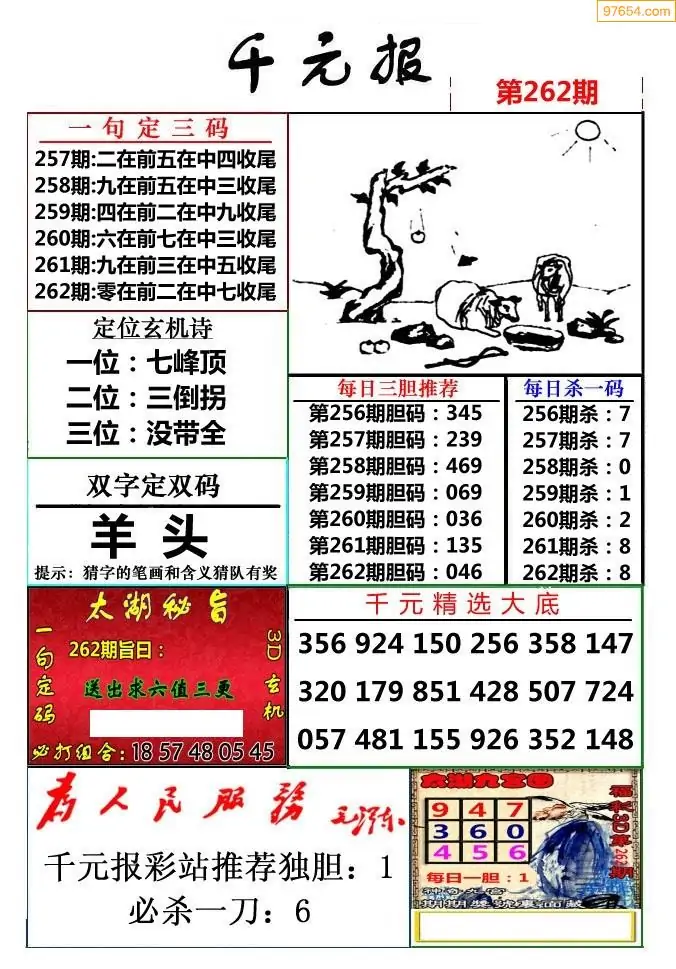 97654.com
千元报
第262期
一句定三码
257期:二在前五在中四收尾
258期:九在前五在中三收尾
259期:四在前二在中九收尾
260期:六在前七在中三收尾
261期:九在前三在中五收尾
262期:零在前二在中七收尾
定位玄机诗
一位：七峰顶
二位：三倒拐
三位：没带全
双字定双码
羊头
提示：猜字的笔画和含义猜队有奖
每日三胆推荐
第256期胆码：345
第257期胆码：239
第258期胆码：469
第259期胆码：069
第260期胆码：036
第261期胆码：135
第262期胆码：046
每日杀一码
256期杀：7
257期杀：7
258期杀：0
259期杀：1
260期杀：2
261期杀：8
262期杀：8
太湖秘旨
一句定码
262期旨曰：
送出求六值三更
3D玄机
必打组合：18 57 48 05 45
千元精选大底
356 924 150 256 358 147
320 179 851 428 507 724
057 481 155 926 352 148
为人民服务
毛泽东
千元报彩站推荐独胆：1
必杀一刀：6
太湖九宫图
9 4 7
3 6 0
4 5 6
福彩3D第262期
每日一胆：1
期期奖号里面藏